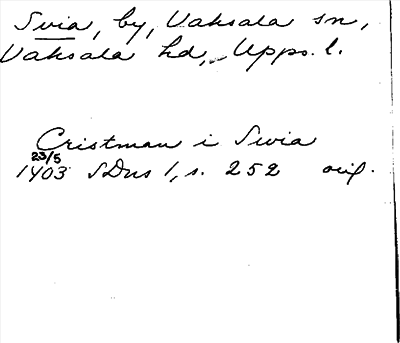 Svia, by, Vaksala sn,
Vaksala hd, Upps. l.
Cristman i Swia
23/5
1403 SDns 1, s. 252 orig.